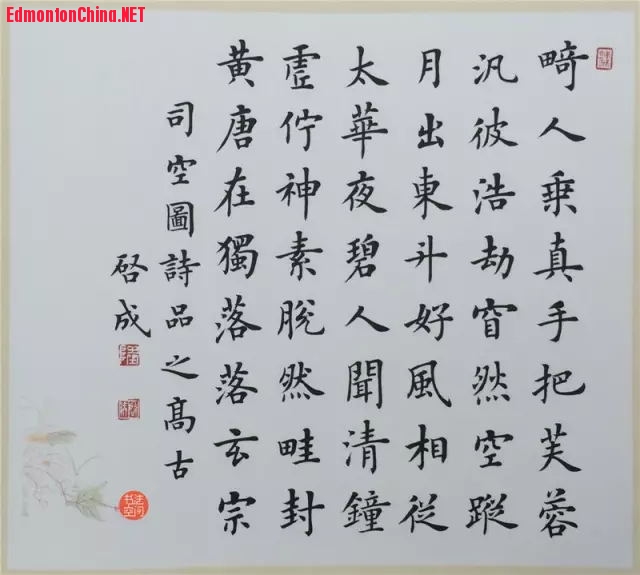 EdmontonChina.NET
畸人乗真手把芙蓉
汎彼浩劫窅然空蹤
月出東斗好風相從
太華夜碧人聞清鐘
虛佇神素脫然畦封
黃唐在獨落落玄宗
司空圖詩品之高古
啓成